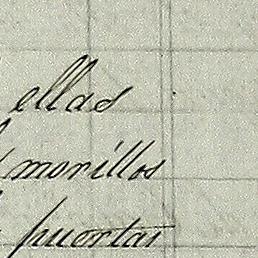 ellas
morillos
puertas